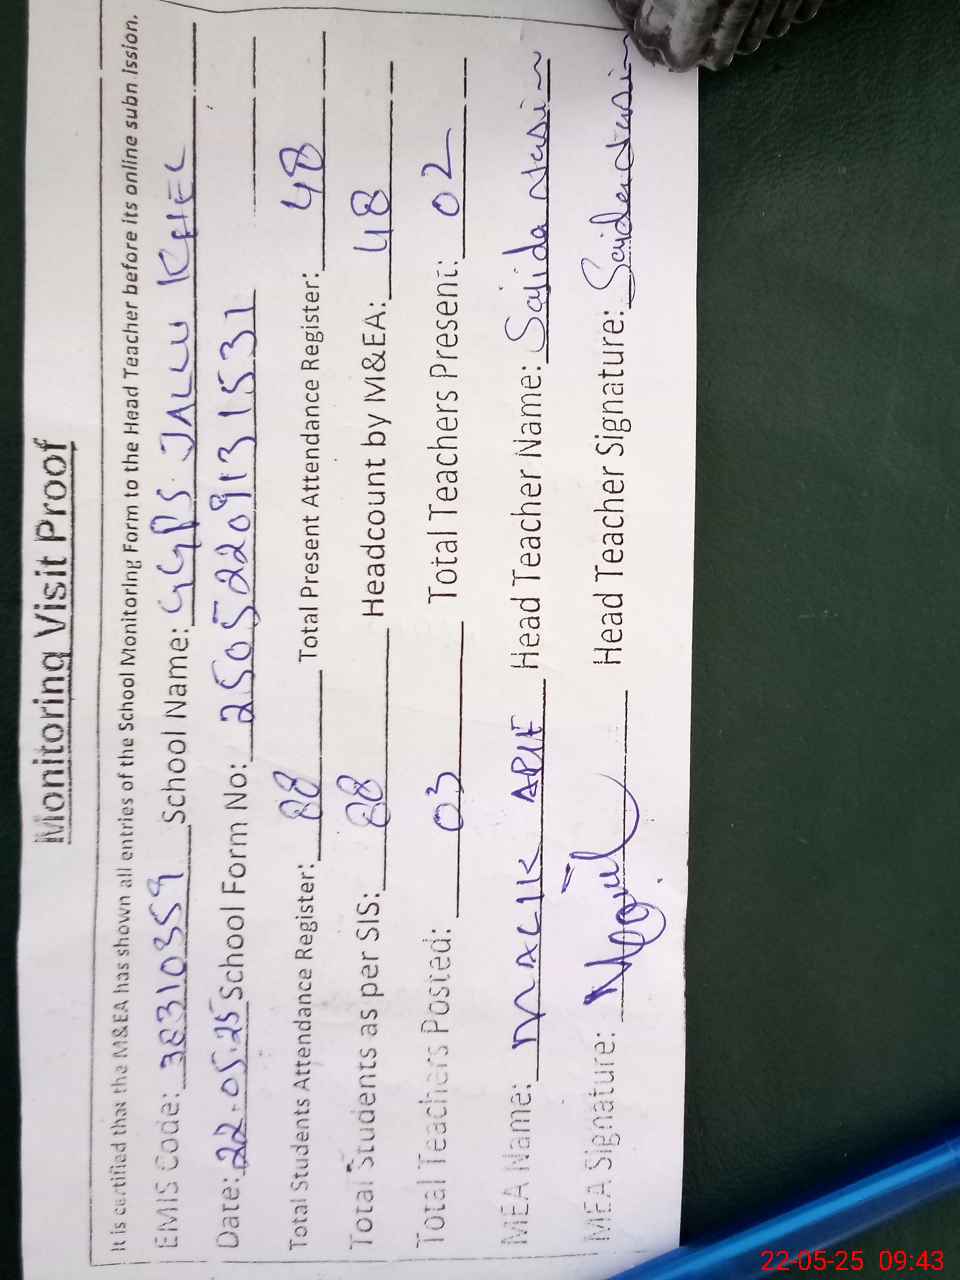 Monitoring Visit Proof
It is certified that the M&EA has shown all entries of the School Monitoring Form to the Head Teacher before its online subn ission.
EMIS Code: 38310359 School Name: GGPS JALLU KHEL
Date: 22.05.25 School Form No: 2505220913 1531
Total Students Attendance Register: 88 Total Present Attendance Register: 48
Total Students as per SIS: 88 Headcount by M&EA: 48
Total Teachers Posted: 03 Total Teachers Present: 02
MEA Name: MALIK ARIF Head Teacher Name: Saida
MEA Signature: Head Teacher Signature: Saida
22-05-25 09:43